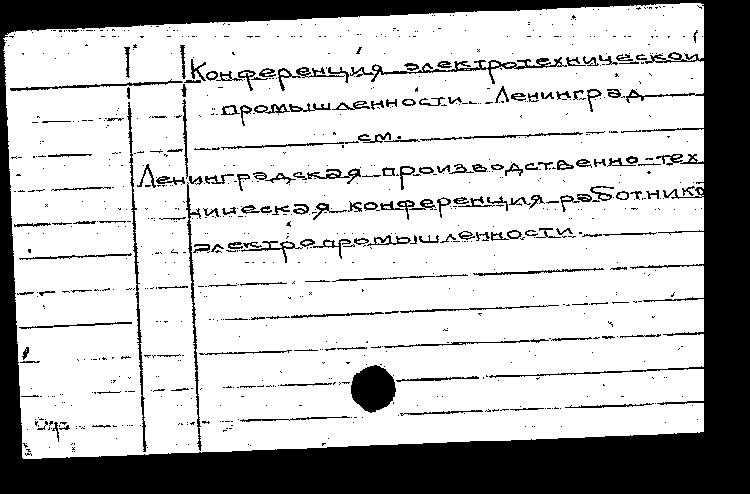 Конференция электротехнической
промышленности. Ленинград
см.
Ленинградская производственно-тех
ническая конференция работников
электропромышленности.